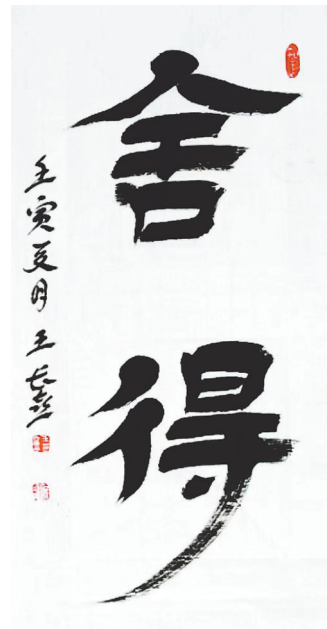 舍得
壬寅夏月 王长焱